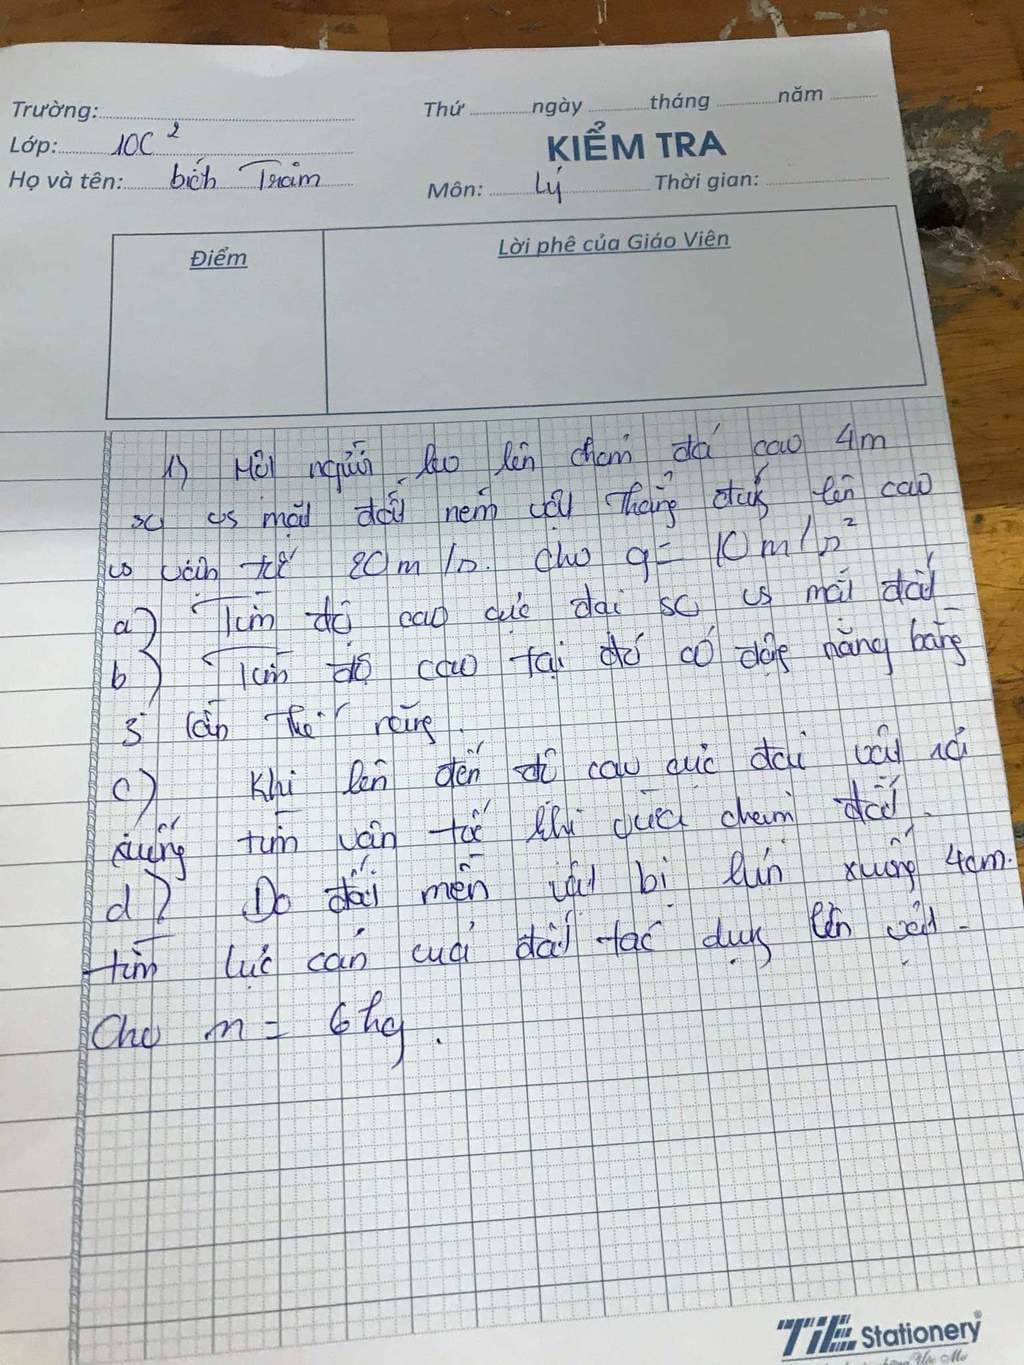 Trường:
Thứ ngày tháng năm
Lớp: 10C2
KIỂM TRA
Họ và tên: bích Trâm
Môn: Lý Thời gian:
Điểm
Lời phê của Giáo Viên
1) Một người leo lên chòm đá cao 4m
so vs mặt đất ném vật thẳng đứng lên cao
vs vận tốc 20m/s. cho g = 10m/s²
a) Tìm độ cao cực đại so vs mặt đất
b) Tìm độ cao tại đó có động năng bằng
3 lần thế năng.
c) Khi lên đến độ cao cực đại vật rơi
xuống tìm vận tốc khi vừa chạm đất.
d) Do đất mền vật bị lún xuống 4cm.
tìm lực cản cuả đất tác dụng lên vật.
Cho m = 6kg.
TiE Stationery